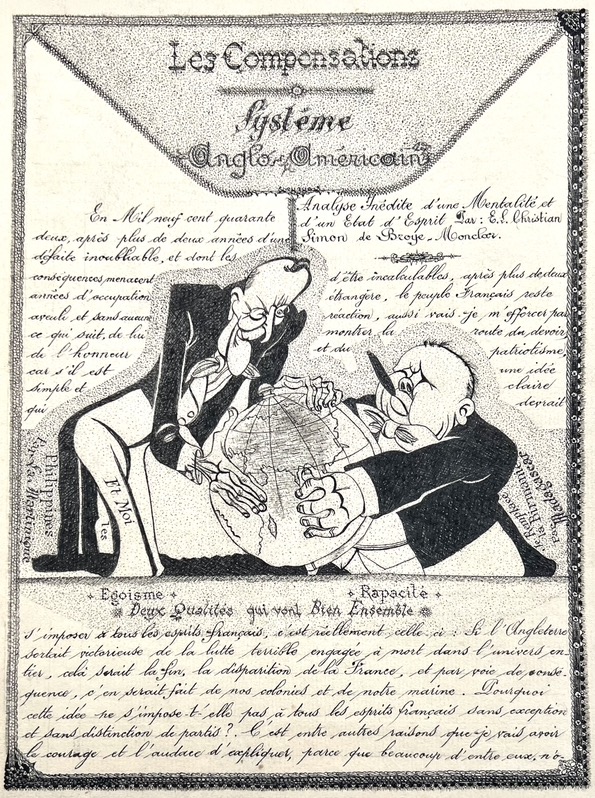 Les Compensations
Système
Anglo-Américain
Analyse Inédite d'une Mentalité et
d'un Etat d'Esprit Par : E.S. Christian
Simon de Broye-Monclar.
En Mil neuf cent quarante
deux, après plus de deux années d'une
défaite inoubliable, et dont les
conséquences menacent d'être incalculables, après plus de deux
années d'occupation étrangère, le peuple Français reste
aveule et sans aucune réaction, aussi vais-je m'efforcer par
ce qui suit, de lui montrer la route du devoir
de l'honneur et du patriotisme,
car s'il est une idée
simple et claire
qui devrait
Philippines
Par La Martinique
Et Moi
les
Remplace
Les Birmanies
Madagascar
Egoisme Rapacité
Deux Qualités qui vont Bien Ensemble
s'imposer à tous les esprits français, c'est réellement celle-ci : Si l'Angleterre
sortait victorieuse de la lutte terrible engagée à mort dans l'univers en-
tier, celà serait la fin, la disparition de la France, et par voie de consé-
quence, c'en serait fait de nos colonies et de notre marine. Pourquoi
cette idée ne s'impose-t-elle pas à tous les esprits français sans exception
et sans distinction de partis ? C'est entre autres raisons que je vais avoir
le courage et l'audace d'expliquer, parce que beaucoup d'entre eux, n'o-